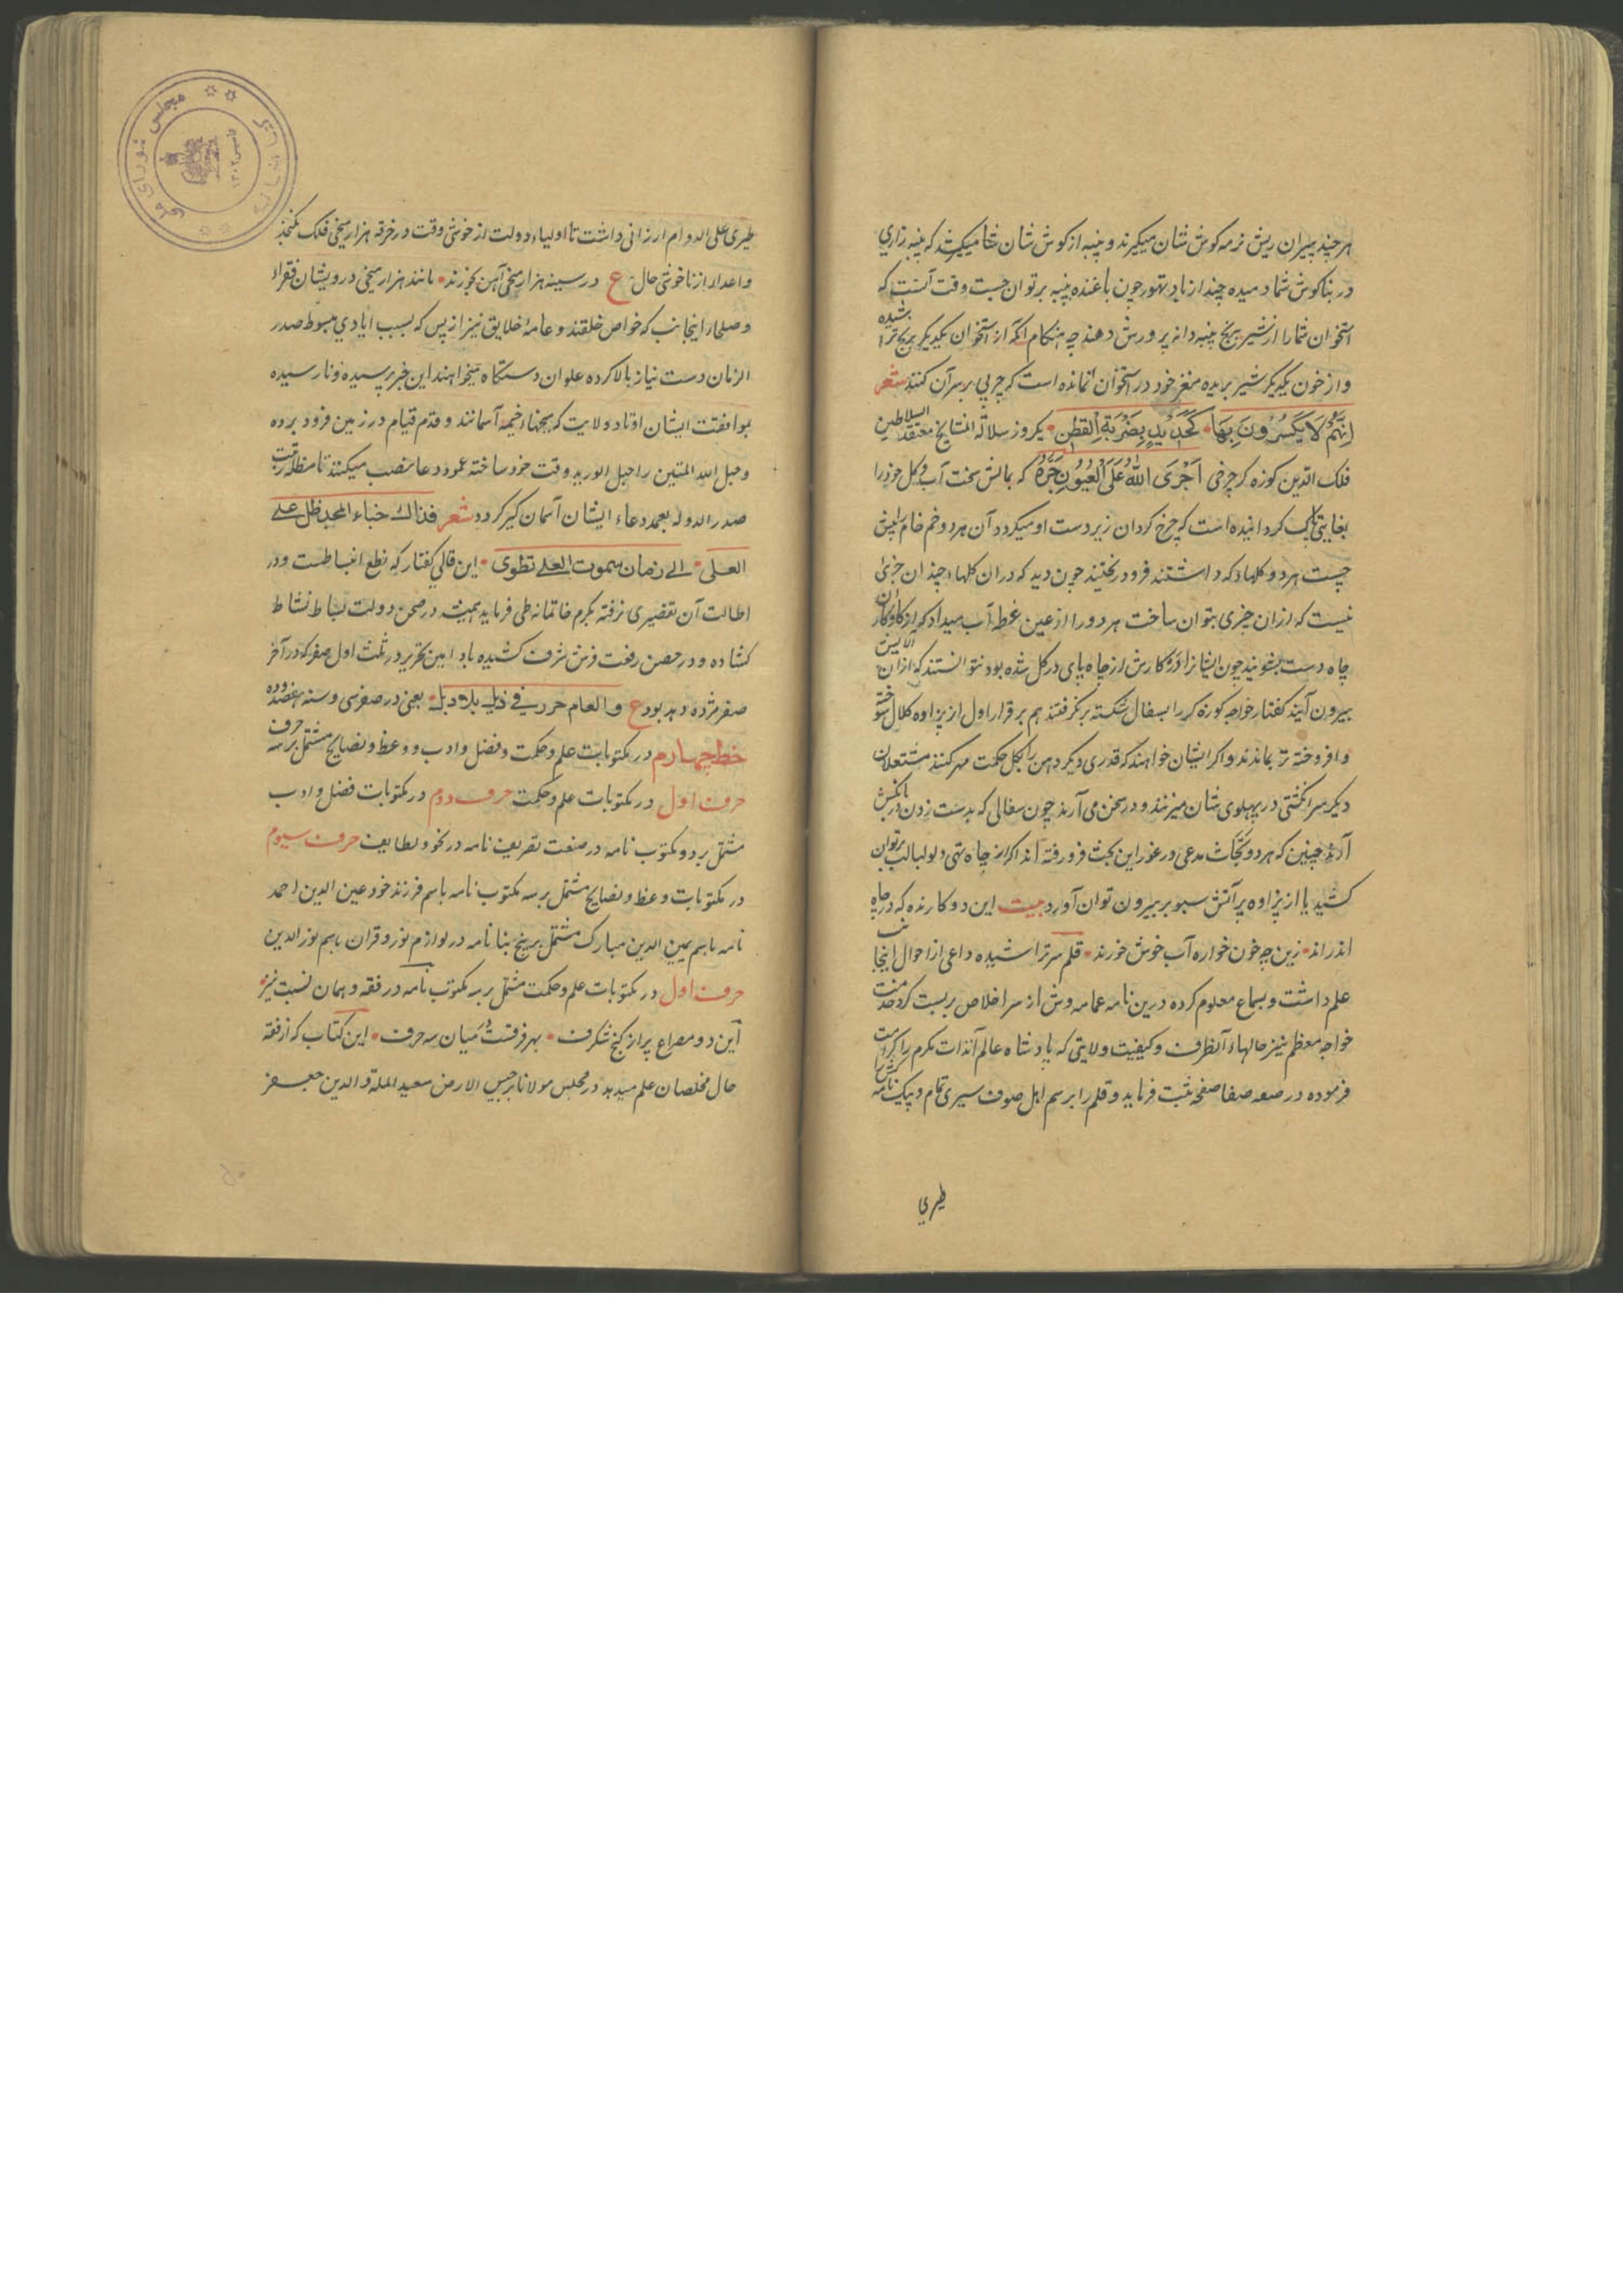 هر چند پیران ریش نرمه کوش شان میکیرند و پنبه از کوش شان شما میکشد که پنبه زاری
در بناکوش شما دمیده چند از باد تهور چون باغنده پنبه بر توان جست وقت آنست که
استخوان شما را از شیر برنج پنبه دانه پرورش دهند چه هنکام آنکه از استخوان یکدیکر برنج ترا شیده
و از خون یکدیکر شیر بریده مغز خود در استخوان نمانده است که چربی بر سر آن کنند شعر
اِنَّهُم لَا یَکسِرُونَ بِهَا • کَحَدِیدٍ بِضَربَةِ القُطنِ • یکروز سلالة المشایخ معتقد السلاطین
فلک الدین کوزه کر چرخی اَجْرَی اللّٰه عَلَی العُیُونِ جَرَّهُ که بمالش سخت آب و کل خود را
بغایتی پاک کردانیده است که چرخ کردان زیر دست او میکردد آن هر دو خم خام پیش
چیست هر دو کلها که داشتند فرو ریختند چون دید که در ان کلها چندان جزئی
نیست که از ان چیزی بتوان ساخت هر دو را از عین غطه آب میداد که از کاو کاران
چاه دست بشویند چون ایشانرا از کارش از چاه پای در کل شده بود نتوانستند که از ان الایش
بیرون آیند کفتار خواجه کوزه کر را بسفال شکسته بر نکرفتند هم بر قرار اول از پزاوه کلال سوخته
و افروخته تر بماندند و اکر ایشان خواهند که قدری دیکر دهن را بکل حکمت مهر کنند مشتعلان
دیکر سر انکشتی در پهلوی شان میزنند و در سخن می آرند چون سفالی که بدست زدن در بانکش
آرند چنین که هر دو بحاث مدعی در غور این بحث فرو رفته اند اکر از چاه تهی دلو لبالب بر توان
کشید یا از پزاوه پر آتش سبو پر بیرون توان آورد بیت این دو کارنده که در چاه
اندر اند • زین چه خون خواره آب خوش خورند • قلم سر تراشیده داعی از احوال اینجانب
علم داشت و بسماع معلوم کرده درین نامه عمامه وش از سر اخلاص بر بست کرد خدمت
خواجه معظم نیز حالهاء آنطرف و کیفیت ولایتی که پادشاه عالم آنذات مکرم را کرامت
فرموده در صعه صفا صفحه ثبت فرماید و قلم را برسم اهل صوف سیری تمام و پیک نامه
طیری
طیری علی الدوام ارزانی داشت تا اولیاء دولت از خوشی وقت در خرقه هزار میخی فلک نکنجند
و اعدا از ناخوشی حال ع در سینه هزار میخ آهن بخورند • مانند هزار میخی درویشان فقراء
و صلحاء اینجانب که خواص خلقند و عامه خلایق نیز از پس که بسبب ایادی مبسوط صدر
الزمان دست نیاز بالا کرده علو ان دستکاه میخواهند این خبر پرسیده و نارسیده
بموافقت ایشان اوتاد ولایت که میخهاء خیمه آسمانند و قدم قیام در زمین فرو برده
و حبل الله المتین را حبل الورید وقت خود ساخته عمود دعا نصب میکنند تا مظله رتبت
صدر الدوله بعمد دعاء ایشان آسمان کیر کردد شعر فذاک خباء المجد ظل علی
العلی • الی زمان سموت العلی تطوی • این قالی کفتار که نطع انبساطست و در
اطالت آن تقصیری نرفته بکرم خاتمانه طی فرماید همیشه در صحن دولت بساط نشاط
کشاده و در حصن رفعت فرش شرف کشیده باد امین تحریر در ثلث اول صفر که در آخر
صفر مژده دهد بود ع والعام حرر فی ذیل بلا دبل • یعنی در صفر سی و سنه هفصد و ده
خط چهارم در مکتوبات علم و حکمت و فضل و ادب و وعظ و نصایح مشتمل بر سه حرف
حرف اول در مکتوبات علم و حکمت حرف دوم در مکتوبات فضل و ادب
مشتمل بر دو مکتوب نامه در صنعت تعریف نامه در نحو و لطایف حرف سیوم
در مکتوبات وعظ و نصایح مشتمل بر سه مکتوب نامه باسم فرزند خود عین الدین احمد
نامه باسم یمین الدین مبارک مشتمل بر پنج بنا نامه در لوازم نوروقران باسم نور الدین
حرف اول در مکتوبات علم و حکمت مشتمل بر سه مکتوب نامه در فقه و همان نسبت نیز •
این دو مصراع پر از کنج شکرف • بهر فرقست میان سه حرف • این کتاب که از فقه
حال مخلصان علم میدهد در مجلس مولانا برجیس الارض سعید الملة و الدین جعفر
مجلس شورای ملی